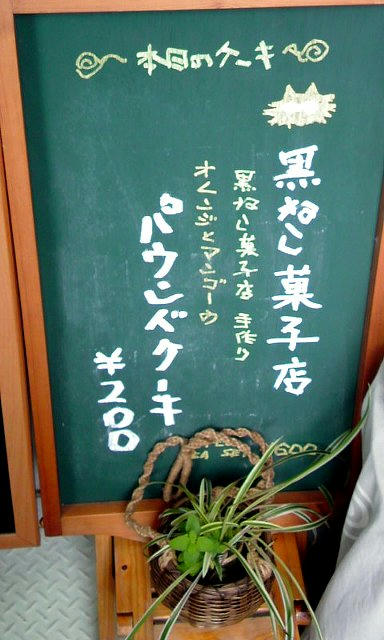 本日のケーキ
黒ねこ菓子店
黒ねこ菓子店 手作り
オレンジとマンゴーの
パウンドケーキ
¥200